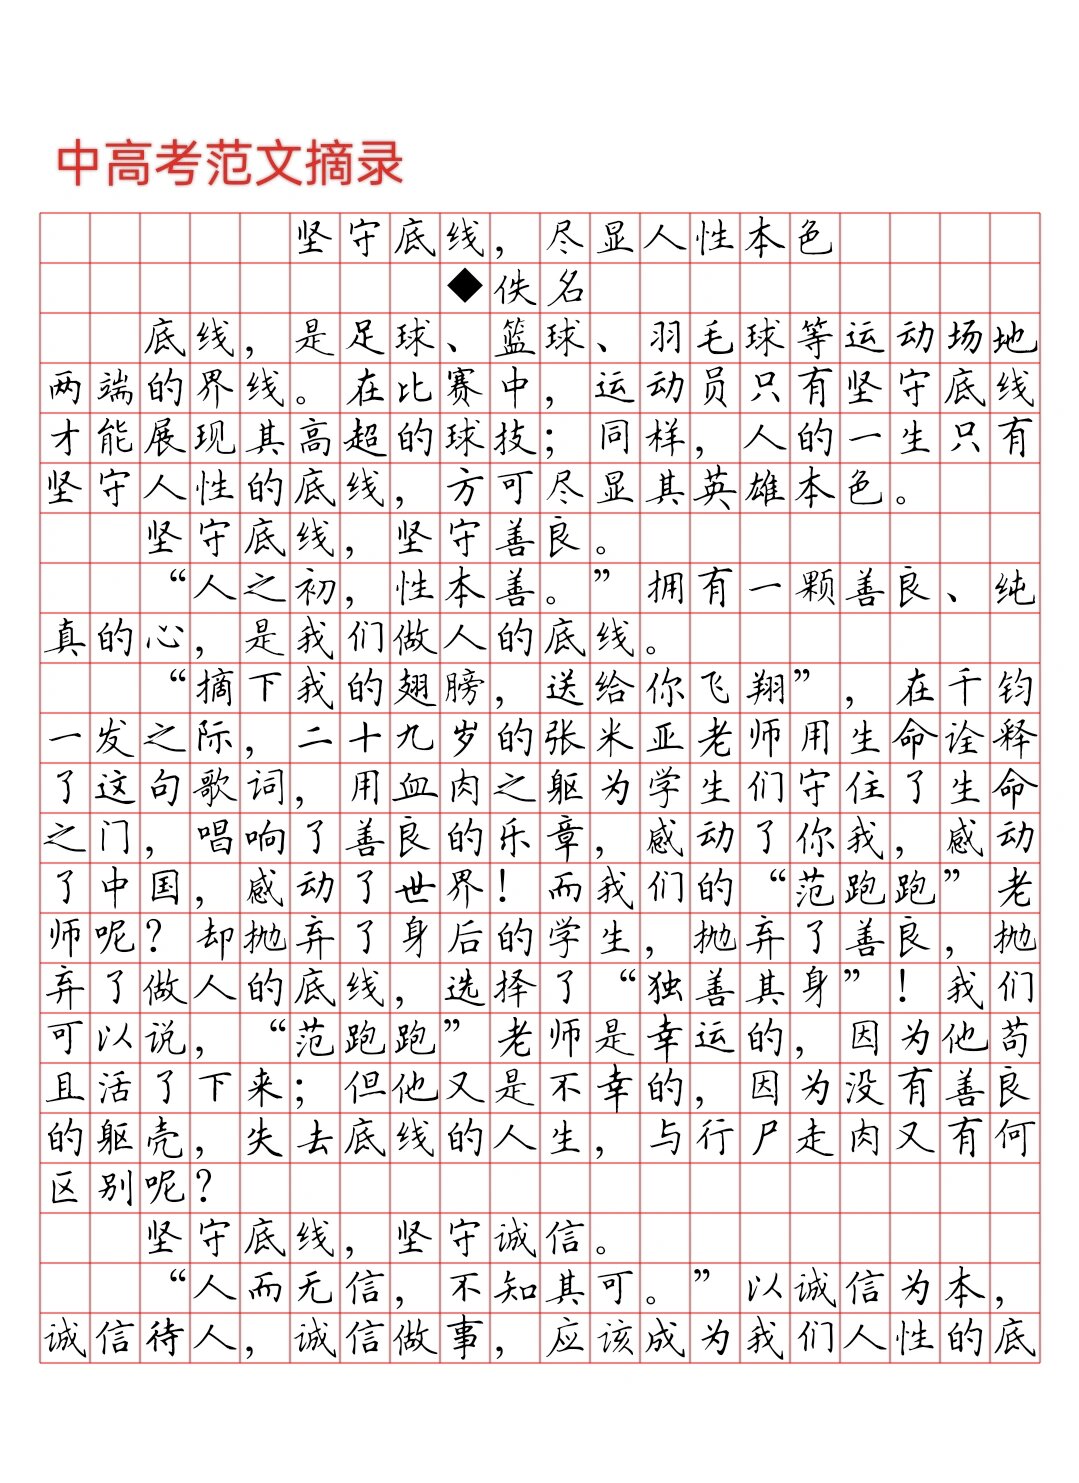 中高考范文摘录
坚守底线，尽显人性本色
◆佚名
底线，是足球、篮球、羽毛球等运动场地
两端的界线。在比赛中，运动员只有坚守底线
才能展现其高超的球技；同样，人的一生只有
坚守人性的底线，方可尽显其英雄本色。
坚守底线，坚守善良。
“人之初，性本善。”拥有一颗善良、纯
真的心，是我们做人的底线。
“摘下我的翅膀，送给你飞翔”，在千钧
一发之际，二十九岁的张米亚老师用生命诠释
了这句歌词，用血肉之躯为学生们守住了生命
之门，唱响了善良的乐章，感动了你我，感动
了中国，感动了世界！而我们的“范跑跑”老
师呢？却抛弃了身后的学生，抛弃了善良，抛
弃了做人的底线，选择了“独善其身”！我们
可以说，“范跑跑”老师是幸运的，因为他苟
且活了下来；但他又是不幸的，因为没有善良
的躯壳，失去底线的人生，与行尸走肉又有何
区别呢？
坚守底线，坚守诚信。
“人而无信，不知其可。”以诚信为本，
诚信待人，诚信做事，应该成为我们人性的底